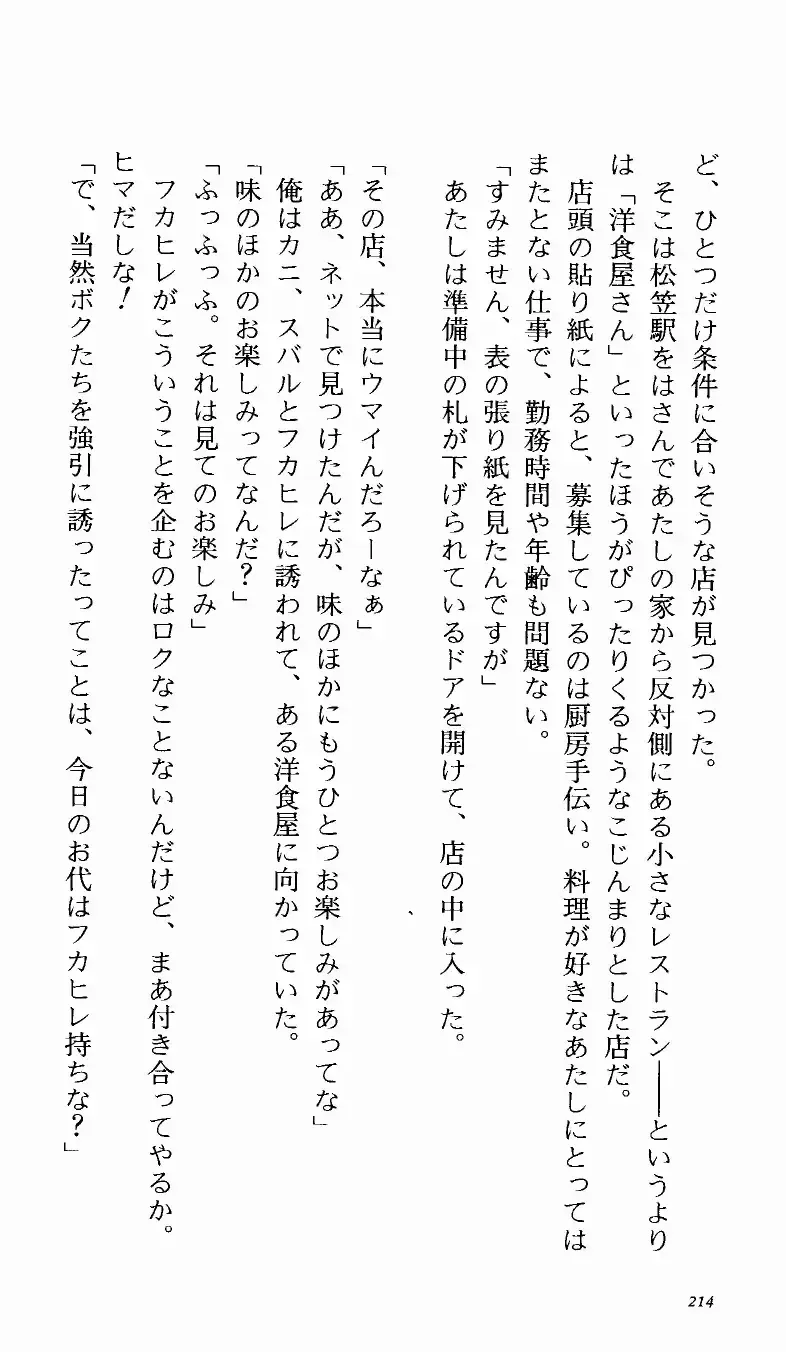 ど、ひとつだけ条件に合いそうな店が見つかった。
　そこは松笠駅をはさんであたしの家から反対側にある小さなレストラン――というより
は「洋食屋さん」といったほうがぴったりくるようなこじんまりとした店だ。
　店頭の貼り紙によると、募集しているのは厨房手伝い。料理が好きなあたしにとっては
またとない仕事で、勤務時間や年齢も問題ない。
「すみません、表の張り紙を見たんですが」
　あたしは準備中の札が下げられているドアを開けて、店の中に入った。
「その店、本当にウマイんだろーなぁ」
「ああ、ネットで見つけたんだが、味のほかにもうひとつお楽しみがあってな」
　俺はカニ、スバルとフカヒレに誘われて、ある洋食屋に向かっていた。
「味のほかのお楽しみってなんだ？」
「ふっふっふ。それは見てのお楽しみ」
　フカヒレがこういうことを企むのはロクなことないんだけど、まあ付き合ってやるか。
ヒマだしな！
「で、当然ボクたちを強引に誘ったってことは、今日のお代はフカヒレ持ちな？」
214